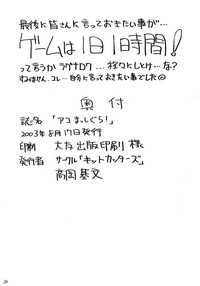 最後に皆さんに言っておきたい事が…
ゲームは1日1時間!
って言うかラグナロク…程々にしとけ…な?
すみません、コレ…自分に言っておきたい事でした
奥付
誌名 「アコまっしぐら!」
2003年8月17日発行
印刷 大友出版印刷 様
発行者 サークル「キットカッターズ」
高岡基文